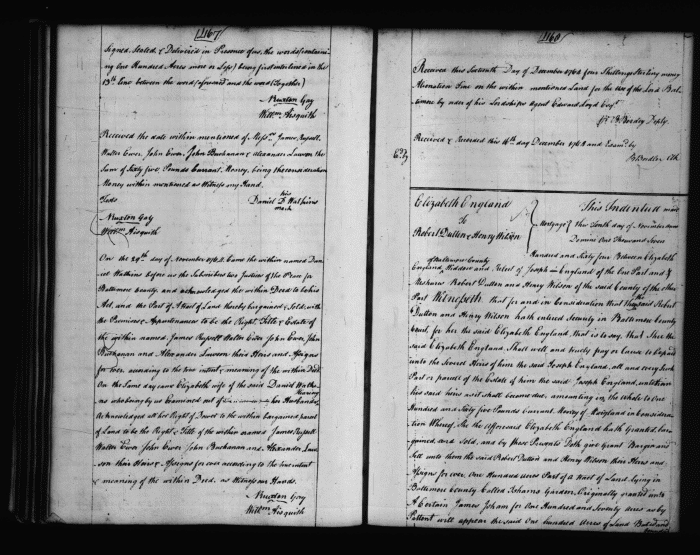 1167
Signed, Sealed, & Delivered in Presence of us, the words (containi
ng One Hundred Acres more or Less) being first interlined in the
13th Line between the words (aforesaid and the word (Together)
Nuxton Gay
Willm Aisquith
Received the date within mentioned of Messrs James Russell
Walter Ewer, John Ewer, John Buchanan & Alexander Lawson the
Sum of Sixty five Pounds Currant Money, being the consideration
Money within mentioned as Witness my Hand.
Teste
his
Daniel D Watkins
mark
Nuxton Gay
Willm Aisquith
On the 29th day of November 1764 Came the within named Dan
iel Watkins before us the Subscribers two Justices of the Peace for
Baltimore County and acknowledged the within Deed to be his
Act, and the Part of A tract of Land thereby bargained & Sold, with
the Premises & Appurtenances to be the Right, Title & Estate of
the within named James Russell Walter Ewer John Ewer, John
Buchanan and Alexander Lawson their Heirs and Assigns
for Ever according to the true intent & meaning of the within Deed.
On the Same day came Elizabeth wife of the said Daniel Watkins
who being by us Examined out of her Husbands
Hearing
Acknowledged all her Right of Dower to the within bargained parcel
of Land to be the Right & Title of the within named James Russell
Walter Ewer John Ewer John Buchanan and Alexander Law
son their Heirs & Assigns for ever according to the true intent
& meaning of the within Deed. as Witness our Hands.
Nuxton Gay
Willm Aisquith
1168
Received this Sixteenth Day of December 1764 four Shillings sterling money
Alienation Fine on the within mentioned Land for the Use of the Lord Bal
timore by order of his Lordships Agent Edward Lloyd Esqr
Depty
Received & Recorded this 16th day December 1764 and Examd by
Clk
Exd
Elizabeth England
To
Robert Dutton & Henry Wilson
Mortgage
This Indenture made
this Tenth day of November anno
Domini One Thousand Seven
Hundred and Sixty four Between Elizabeth
of Baltimore County
England, Widdow and Relict of Joseph England of the One Part and
Meshures Robert Dutton and Henry Wilson of the said County of the Other
Part Witnesseth. That for and in Consideration that the said Robert
Dutton and Henry Wilson hath entered Security in Baltimore County
Court, for her the said Elizabeth England, that is to say, that Shee the
said Elizabeth England Shall well and truely pay or cause to be paid
unto the Severel Heirs of him the said Joseph England, all and every such
Part or parcel of the Estate of him the said Joseph England, unto
his said heirs will Shall become due, amounting in the whole to One
Hundred and Sixty five Pounds Currant Money of Maryland in considera
tion Whereof, She the Aforesaid Elizabeth England hath Granted, bar
gained and Sold, and by these Presents Doth give Grant Bargain and
Sell unto them the said Robert Dutton and Henry Wilson their Heirs and
Assigns for ever, One Hundred acres Part of a tract of Land lying in
Baltimore County Called Johams Garden, Originally Granted unto
A Certain James Joham for One Hundred and Seventy Acres as by
Pattent will appear the said One hundred Acres of Land